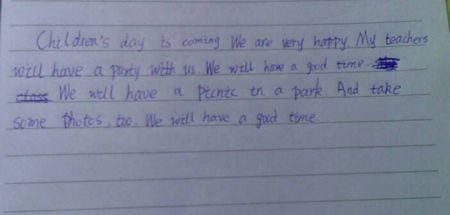 Children's day is coming We are very happy My teachers
will have a party with us. We will have a good time.
class We will have a picnic in a park And take
some photos, too. We will have a good time